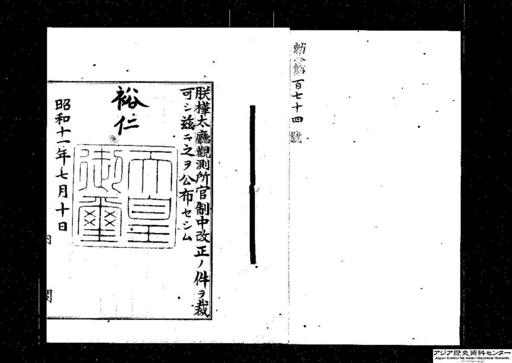 勅令第百七十四號
朕樺太廳觀測所官制中改正ノ件ヲ裁
可シ茲ニ之ヲ公布セシム
裕仁
天皇御璽
昭和十一年七月十日
内閣
アジア歴史資料センター
Japan Center for Asian Historical Records